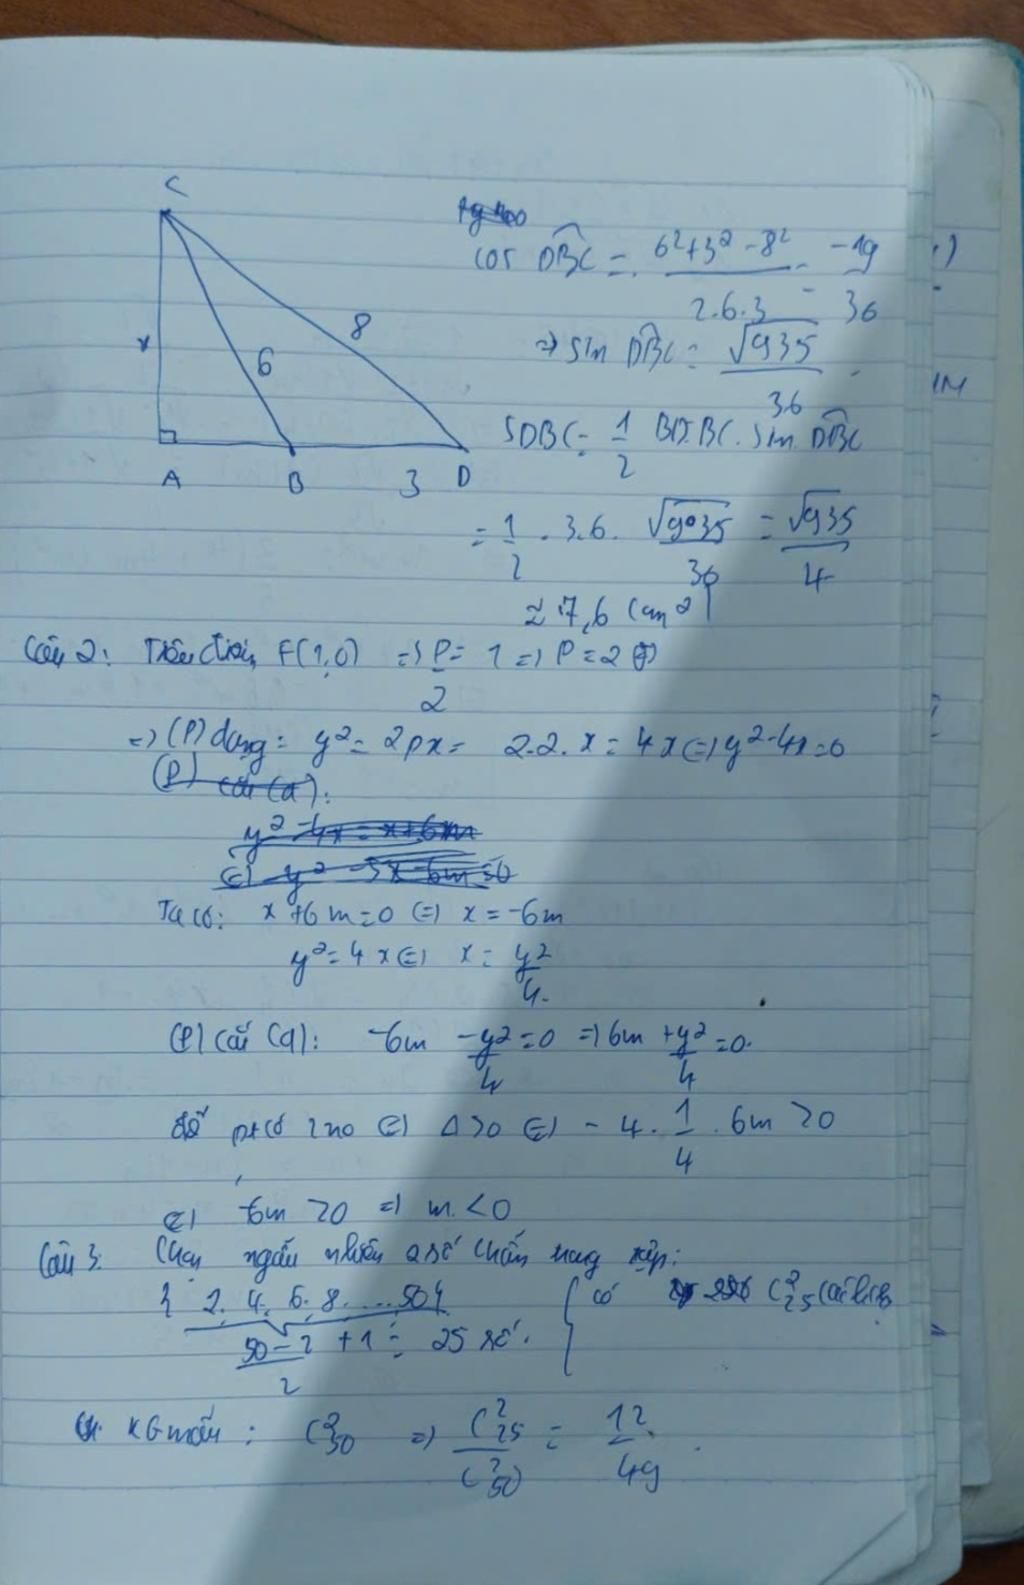 C
x
8
6
A B 3 D
cos DBC = (6² + 3² - 8²)/(2.6.3) = -19/36
=> sin DBC = √935/36
SDBC = 1/2 BD.BC. sin DBC
= 1/2 . 3.6. √935/36 = √935/4
≈ 7,6 (cm²)
Câu 2: Tiêu điểm F(1,0) => P/2 = 1 => P = 2
=> (P) dạng: y² = 2px = 2.2.x = 4x <=> y² - 4x = 0
(P) cắt (d):
y² - 4x = x + 6m
<=> y² - 5x - 6m = 0
Ta có: x + 6m = 0 <=> x = -6m
y² = 4x <=> x = y²/4
(P) cắt (d): -6m - y²/4 = 0 => 6m + y²/4 = 0.
để pt có 2 no <=> Δ > 0 <=> - 4 . 1/4 . 6m > 0
<=> -6m > 0 => m < 0
Câu 3: Chọn ngẫu nhiên 2 số chẵn
{ 2. 4. 6. 8. ... 50}
(50 - 2)/2 + 1 = 25 số.
có C²25
KG mẫu : C²50 => C²25/C²50 = 12/49